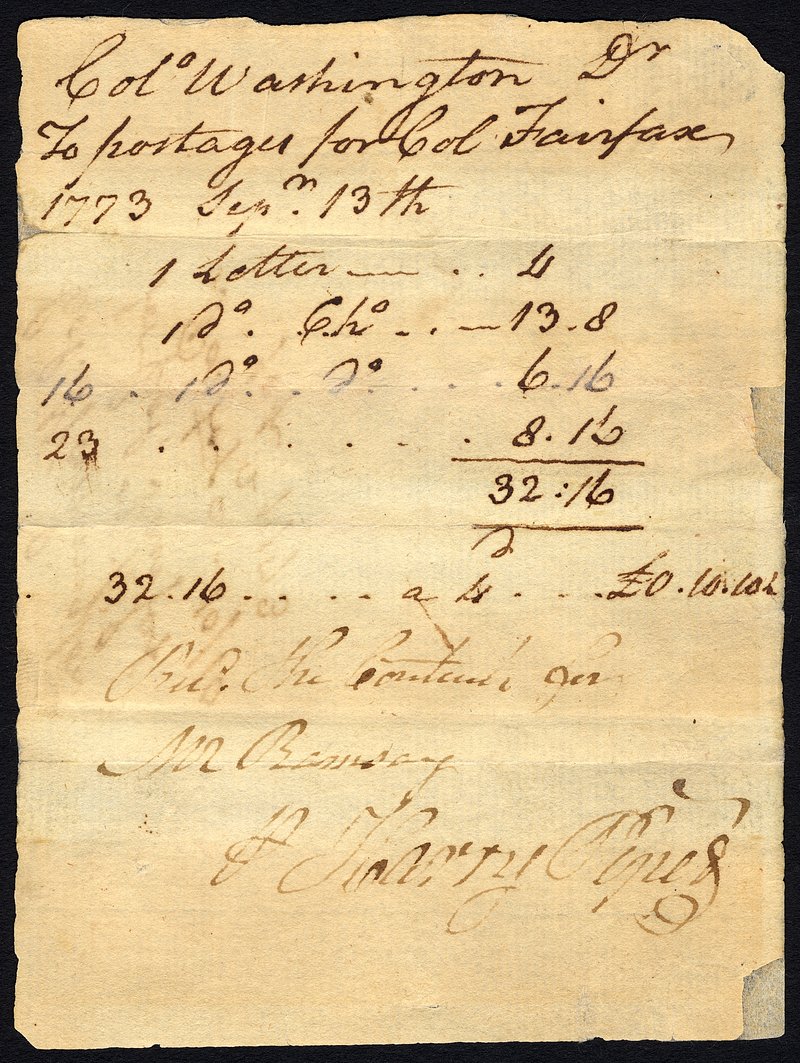 Colo Washington Dr
To postages for Col Fairfax
1773 Sepr. 13th
1 Letter — . . 4
1 do. Cho . . — 13.8
16 . 1 do. . do . . . . 6.16
23 . . . . . . 8.16
32:16
d
. 32.16 . . . . a 4 . . . £0.10.10½
Recd. the Contents for
Mr Ramsay
P Harry Piper